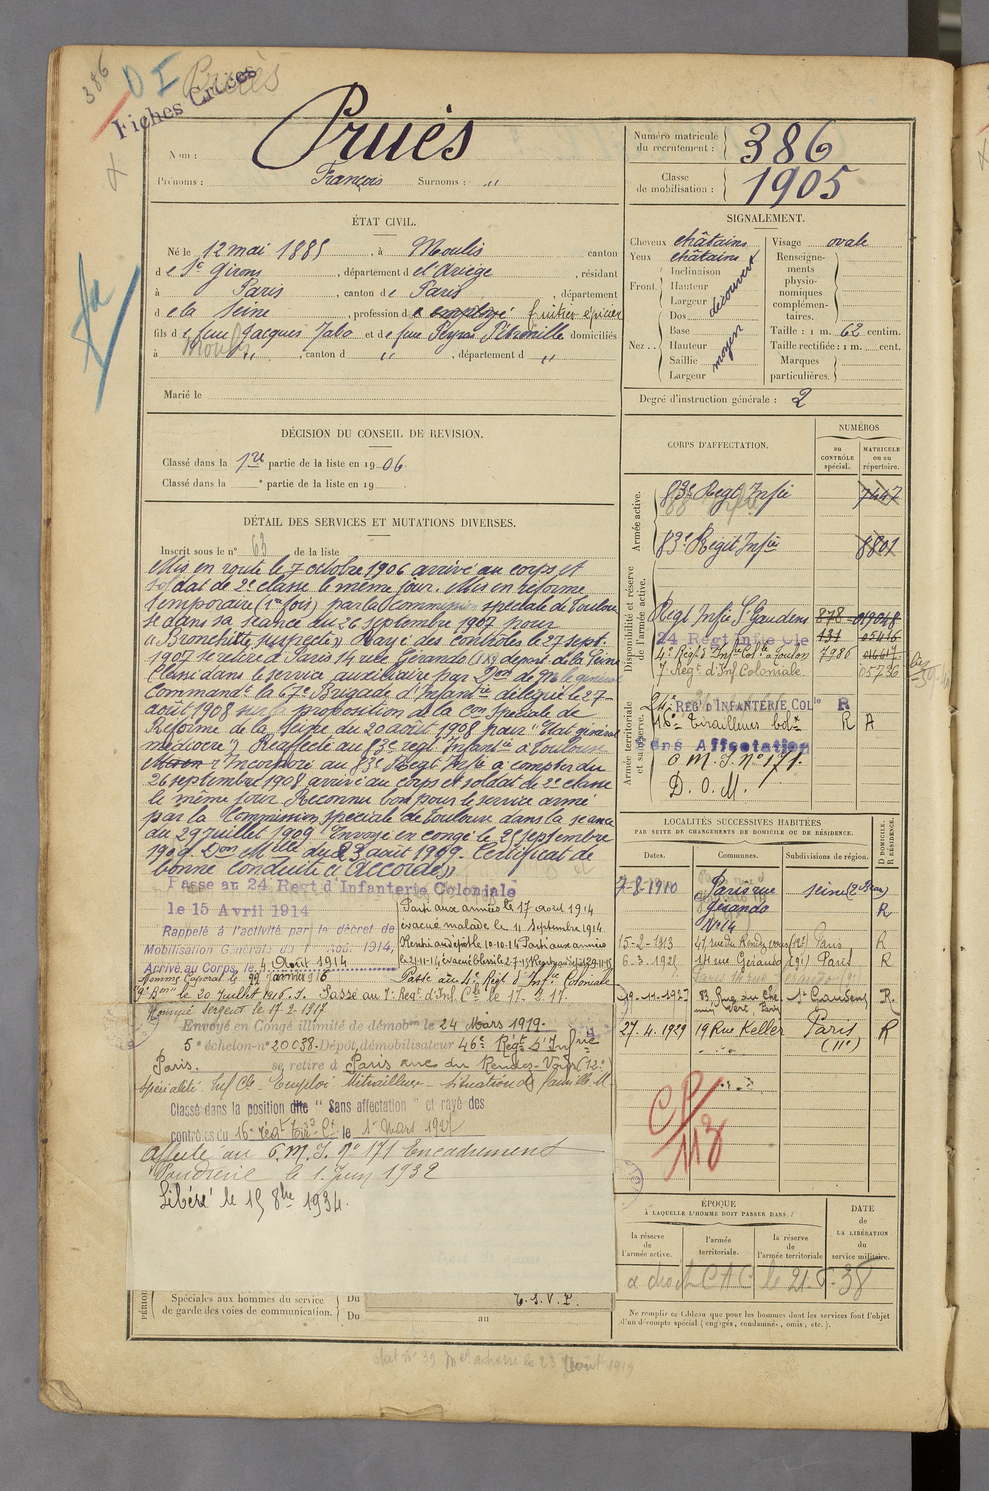 386
DI Pruès
Fiches Croisés
Nom : Pruès
Prénoms : François Surnoms : "
Numéro matricule du recrutement : 386
Classe de mobilisation : 1905
ÉTAT CIVIL.
Né le 12 mai 1885, à Moulis canton
de St Girons, département de l'Ariège, résidant
à Paris, canton de Paris, département
de la Seine, profession de employé fruitier épicier
fils de feu Jacques Jabo et de feue Peyras Pétronille domiciliés
à Moulis ", canton d ", département d "
Marié le
SIGNALEMENT.
Cheveux châtains
Yeux châtains
Front. Inclinaison
Hauteur
Largeur
découvert
Nez .. Dos
Base
Hauteur
Saillie
Largeur
moyen
Visage ovale
Renseignements physionomiques complémentaires.
Taille : 1 m. 62 centim.
Taille rectifiée : 1 m. cent.
Marques particulières.
Degré d'instruction générale : 2
DÉCISION DU CONSEIL DE REVISION.
Classé dans la 1re partie de la liste en 1906.
Classé dans la e partie de la liste en 19
DÉTAIL DES SERVICES ET MUTATIONS DIVERSES.
Inscrit sous le n° 63 de la liste
Mis en route le 7 octobre 1906 arrivé au corps et
soldat de 2e classe le même jour. Mis en réforme
temporaire (1re fois) par la Commission spéciale de Toulouse
dans sa séance du 26 septembre 1907 pour
"Bronchite suspecte". Rayé des contrôles le 27 sept.
1907 se retire à Paris 14 rue Gérando (IXe) départ. de la Seine
Classé dans le service auxiliaire par Don de Mr le général
Command. la 67e Brigade d'Infantie déléguée le 27
août 1908 sur la proposition de la Con spéciale de
Réforme de la Seine du 20 août 1908 pour "Etat général
médiocre". Réaffecté au 83e régt Infantie à Toulouse
Incorporé au 83e Régt Infie à compter du
26 septembre 1908 arrivé au corps et soldat de 2e classe
le même jour Reconnu bon pour le service armé
par la Commission spéciale de Toulouse dans la séance
du 29 juillet 1909 Envoyé en congé le 25 septembre
1909. Don Mlle du 23 août 1909. Certificat de
bonne conduite "Accordé"
Passé au 24 Regt d'Infanterie Coloniale
le 15 Avril 1914
Rappelé à l'activité par le décret de
Mobilisation Générale du 1 Août 1914,
Arrivé au Corps le 4 Août 1914
Parti aux armées le 17 août 1914
évacué malade le 11 septembre 1914
Rentré au dépôt le 10-10-14 Parti aux armées
le 21-11-14 évacué blessé 2-7-15
Nommé Caporal le 22 janvier 1916 Passé au 4e Régt d'Infie Coloniale
le 20 Juillet 1916. Passé au 7e Régt d'Inf. Cle le 17.2.17.
Nommé Sergent le 17-2-1917
Envoyé en Congé illimité de démobon le 24 Mars 1919.
5e échelon n° 20038. Dépôt démobilisateur 46e Régt d'Infrie
Paris. se retire à Paris rue du Rendez-Vous (12e
Spécialité Inf Cle Emploi Mitrailleur Situation de famille M
Classé dans la position dite "Sans affectation" et rayé des
contrôles du 16e Régt Tir. Ct le 1er Mars 1927
Affecté au O.M.I. N° 171 Encadrement
Poudrerie le 1 Juin 1932
Libéré le 15 8bre 1934.
PÉRIOD
Spéciales aux hommes du service
de garde des voies de communication.
Du
Du au
T. S. V. P.
CORPS D'AFFECTATION.
NUMÉROS
au contrôle spécial.
matricule ou au répertoire.
Armée active.
83e Régt Infie 7447
83e Régit Infie 8801
Disponibilité et réserve de l'armée active.
Régt Infie St Gaudens 878 019048
24 Regt Infie Cle 131 05416
4e Régt d'Infie Colle à Toulon 7986 01661
7 Régt d'Inf. Coloniale 05736
Armée territoriale et sa réserve.
24e REGt D'INFANTERIE COLle R
16e Tirailleurs colx R A
Sans Affectation
O.M.I. N° 171.
D.O.M.
LOCALITÉS SUCCESSIVES HABITÉES
PAR SUITE DE CHANGEMENTS DE DOMICILE OU DE RÉSIDENCE.
Dates. Communes. Subdivisions de région. D DOMICILE. R RÉSIDENCE.
7-8-1910 Paris rue Gérando N° 14 Seine (2e Bau) R
15-2-1913 41 rue du Rendez vous (12e) Paris R
6.3.1921 14 rue Gérando (9e) Paris R
19-11-1927 83, Rue du Chemin Vert, Paris St Gaudens R.
27.4.1929 19 Rue Keller Paris (11e) R
CP
113
ÉPOQUE
À LAQUELLE L'HOMME DOIT PASSER DANS :
la réserve de l'armée active.
l'armée territoriale.
la réserve de l'armée territoriale
DATE de LA LIBÉRATION du service militaire.
a droit CAC le 21-6-38
Ne remplir ce tableau que pour les hommes dont les services font l'objet
d'un décompte spécial (engagés, condamnés, omis, etc.).